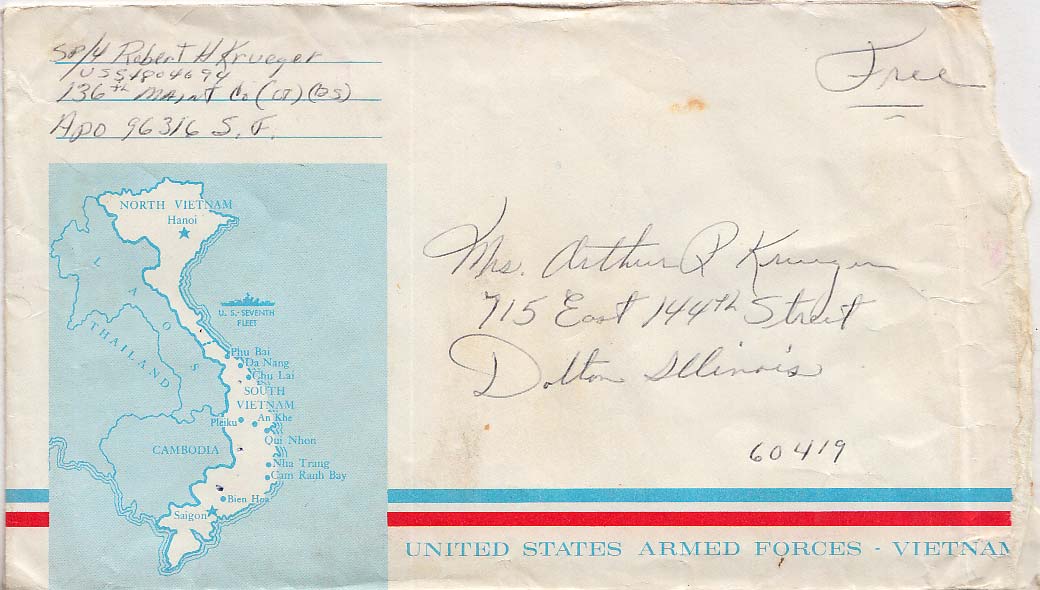 Sp/4 Robert H Krueger
136th Maint Co (DS)
APO 96316 S.F.
Free
Mrs. Arthur P Krueger
715 East 144th Street
Dolton Illinois
60419
NORTH VIETNAM
Hanoi
LAOS
THAILAND
U. S. SEVENTH
FLEET
Phu Bai
Da Nang
Chu Lai
SOUTH
VIETNAM
An Khe
Pleiku
Qui Nhon
CAMBODIA
Nha Trang
Cam Ranh Bay
Bien Hoa
Saigon
UNITED STATES ARMED FORCES - VIETNAM